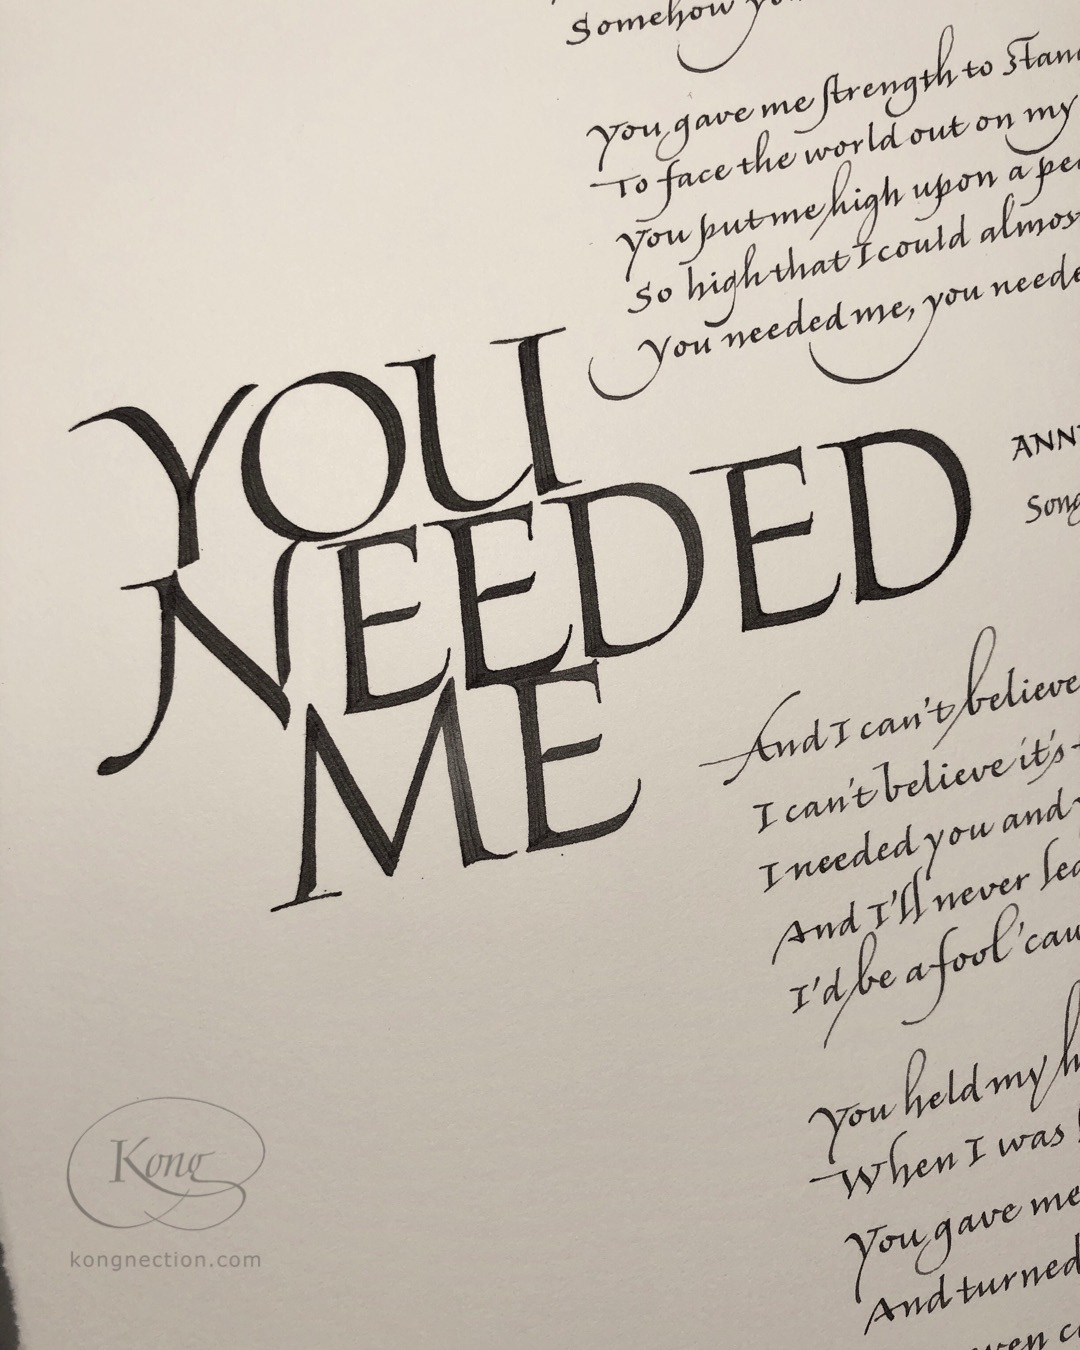 Somehow you
You gave me strength to stand
To face the world out on my
You put me high upon a
So high that I could almost
You needed me, you
YOU
NEEDED
ME
And I can't believe
I can't believe it's
I needed you and
And I'll never
I'd be a fool 'cau
You held my
When I was
You gave me
And turned
Kong
kongnection.com